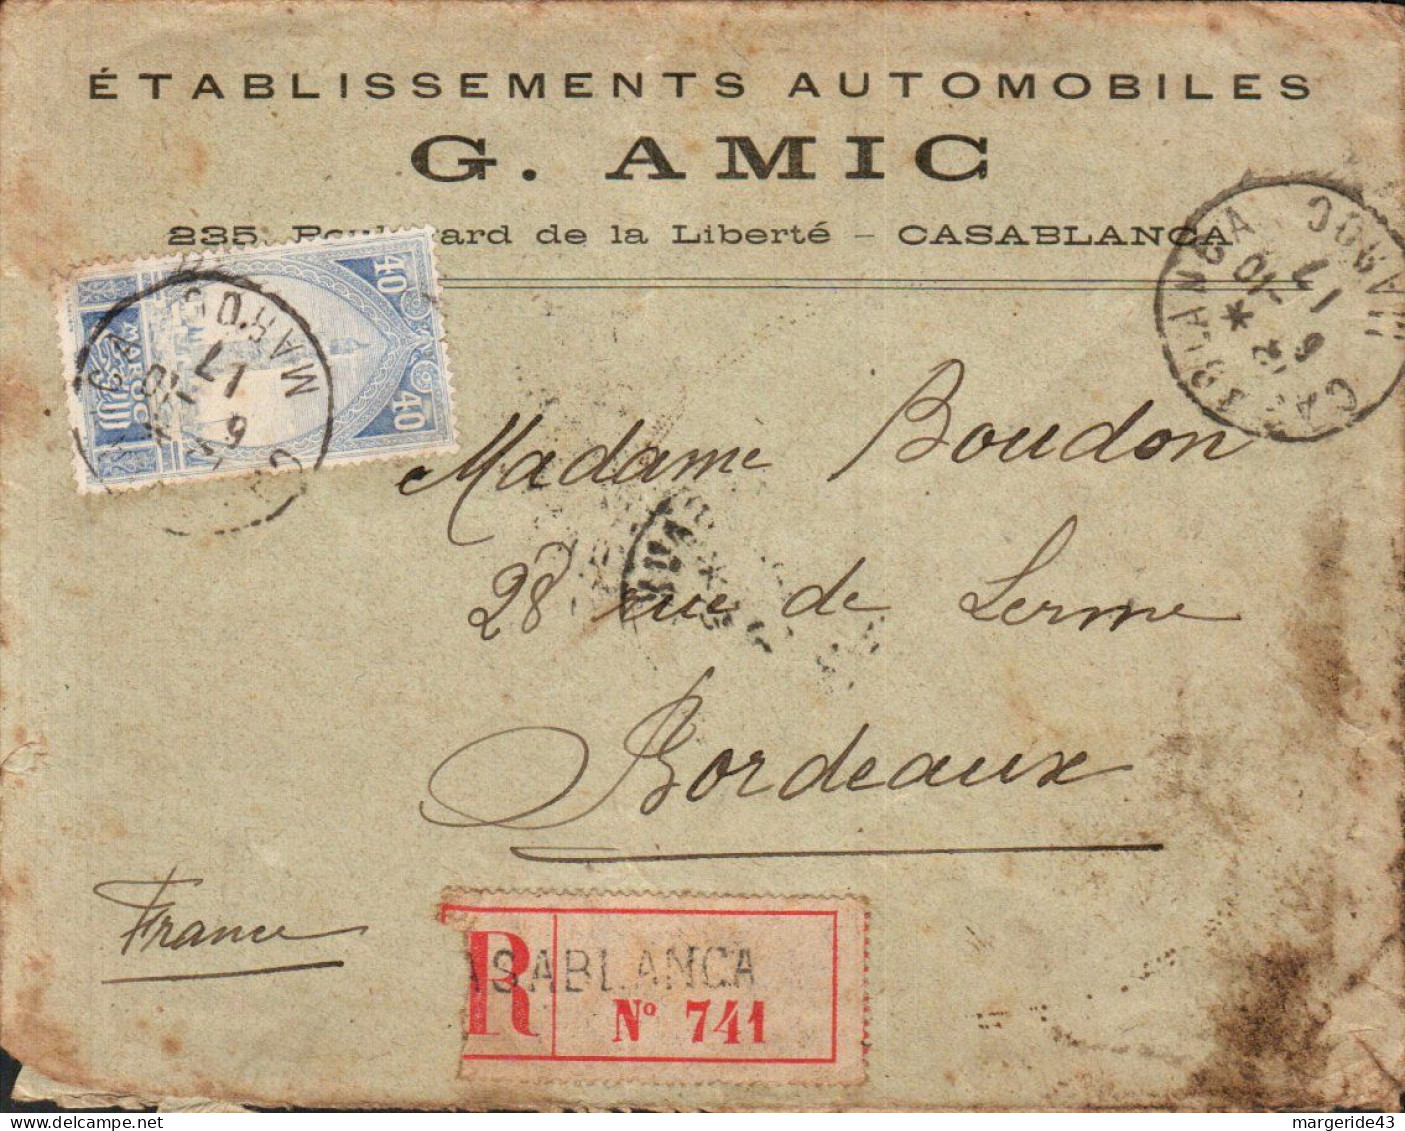 ÉTABLISSEMENTS AUTOMOBILES
G. AMIC
235, Boulevard de la Liberté – CASABLANCA
40
40
MAROC
MAROC
17
6
CASABLANCA MAROC
17 -10
6
Madame Boudon
28 rue de Lerme
Bordeaux
France
R
CASABLANCA
N° 741
margeride43